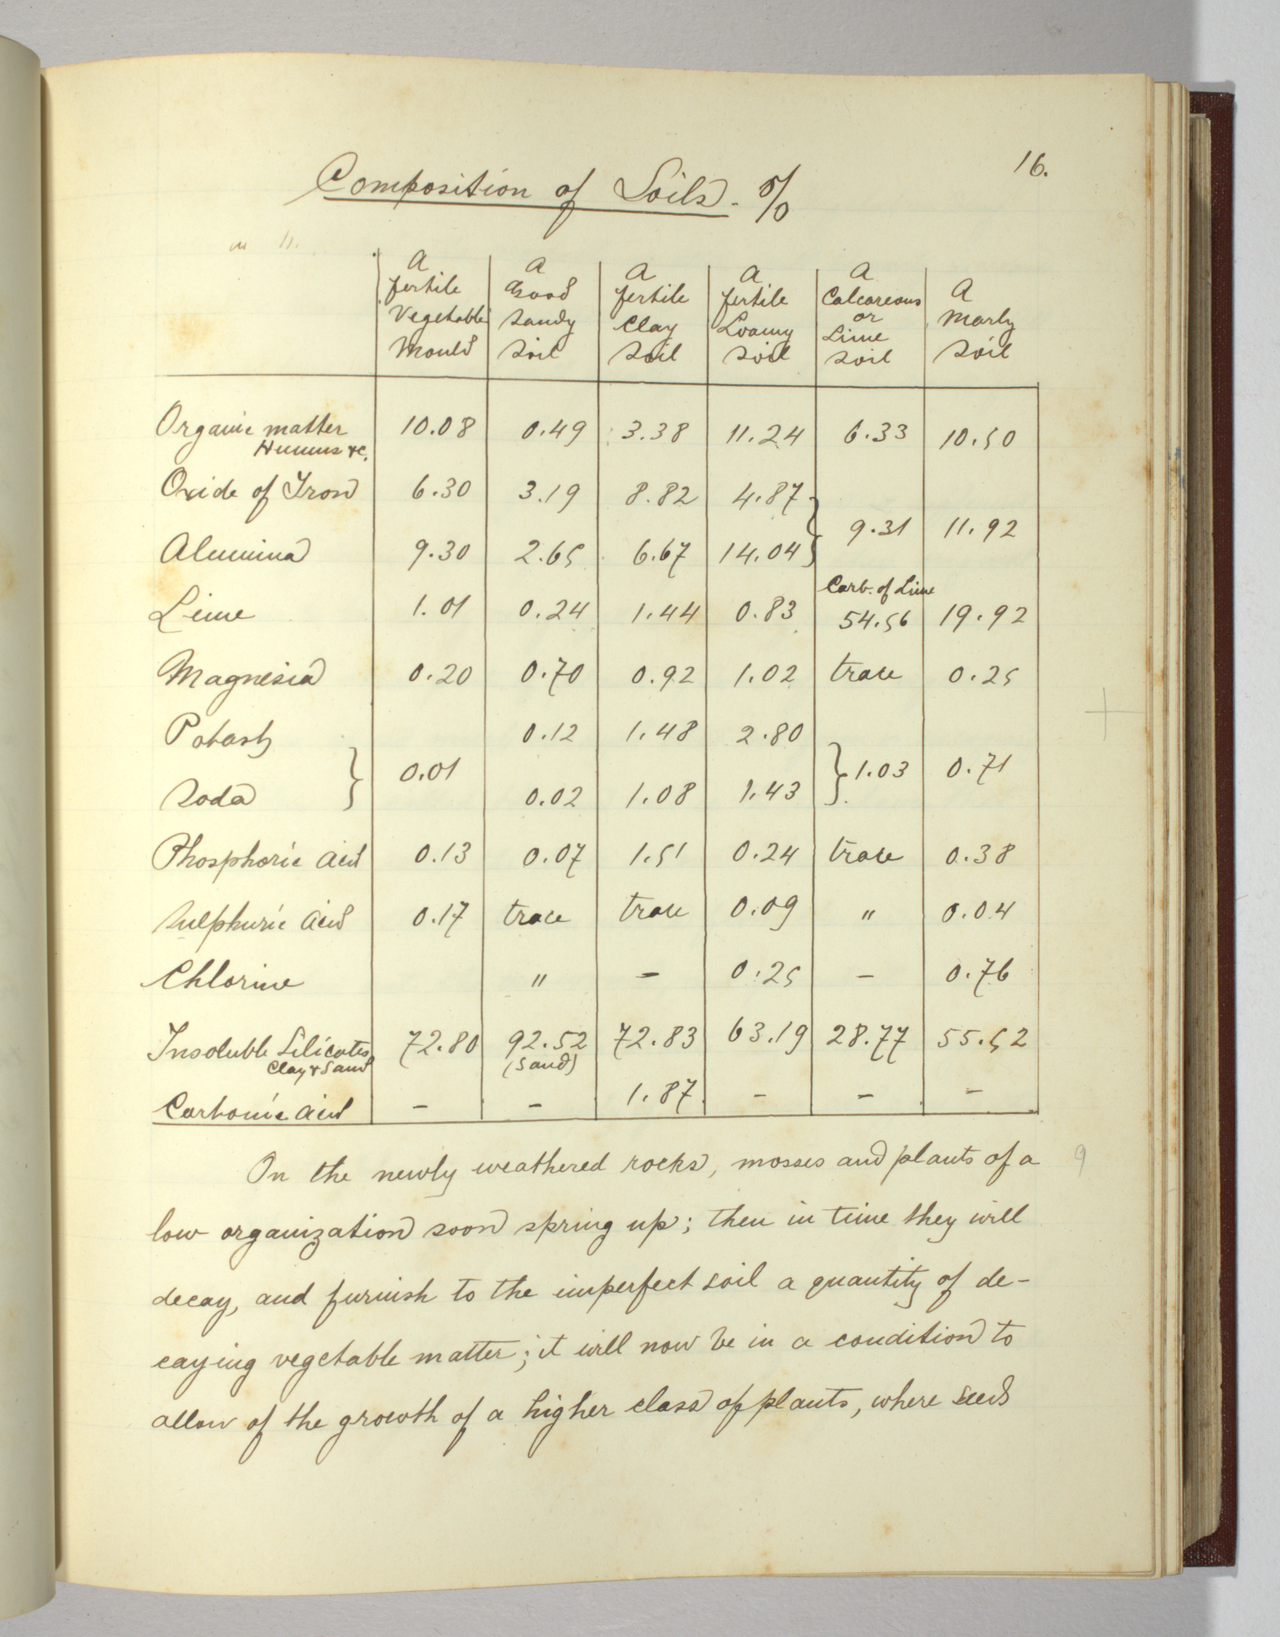 16.
Composition of Soils. %
A fertile Vegetable Mould | A Good Sandy Soil | A fertile Clay Soil | A fertile Loamy Soil | A Calcareous or Lime Soil | A Marly Soil
Organic matter Humus &c. | 10.08 | 0.49 | 3.38 | 11.24 | 6.33 | 10.50
Oxide of Iron | 6.30 | 3.19 | 8.82 | 4.87 } 9.31 | 11.92
Alumina | 9.30 | 2.65 | 6.67 | 14.04 }
Lime | 1.01 | 0.24 | 1.44 | 0.83 | Carb. of Lime 54.56 | 19.92
Magnesia | 0.20 | 0.70 | 0.92 | 1.02 | trace | 0.25
Potash } 0.01 | 0.12 | 1.48 | 2.80 } 1.03 | 0.71
Soda } | 0.02 | 1.08 | 1.43 }
Phosphoric Acid | 0.13 | 0.07 | 1.51 | 0.24 | trace | 0.38
Sulphuric Acid | 0.17 | trace | trace | 0.09 | " | 0.04
Chlorine | | " | – | 0.25 | – | 0.76
Insoluble Silicates Clay & Sand | 72.80 | 92.52 (Sand) | 72.83 | 63.19 | 28.77 | 55.52
Carbonic Acid | – | – | 1.87 | – | – | –
On the newly weathered rocks, mosses and plants of a
low organization soon spring up; then in time they will
decay, and furnish to the imperfect soil a quantity of de-
caying vegetable matter; it will now be in a condition to
allow of the growth of a higher class of plants, where seeds
9